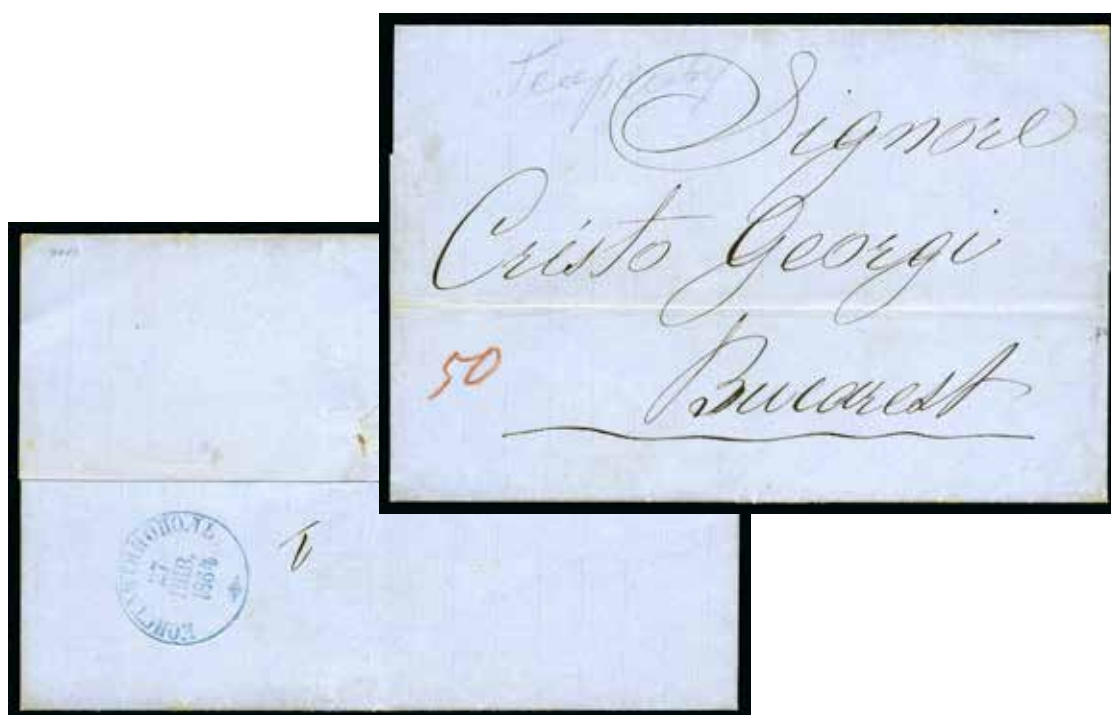 Signore
Cristo Georgi
50
Bucarest
КОНСТАНТИНОПОЛЬ
27
ЯНВ.
1864